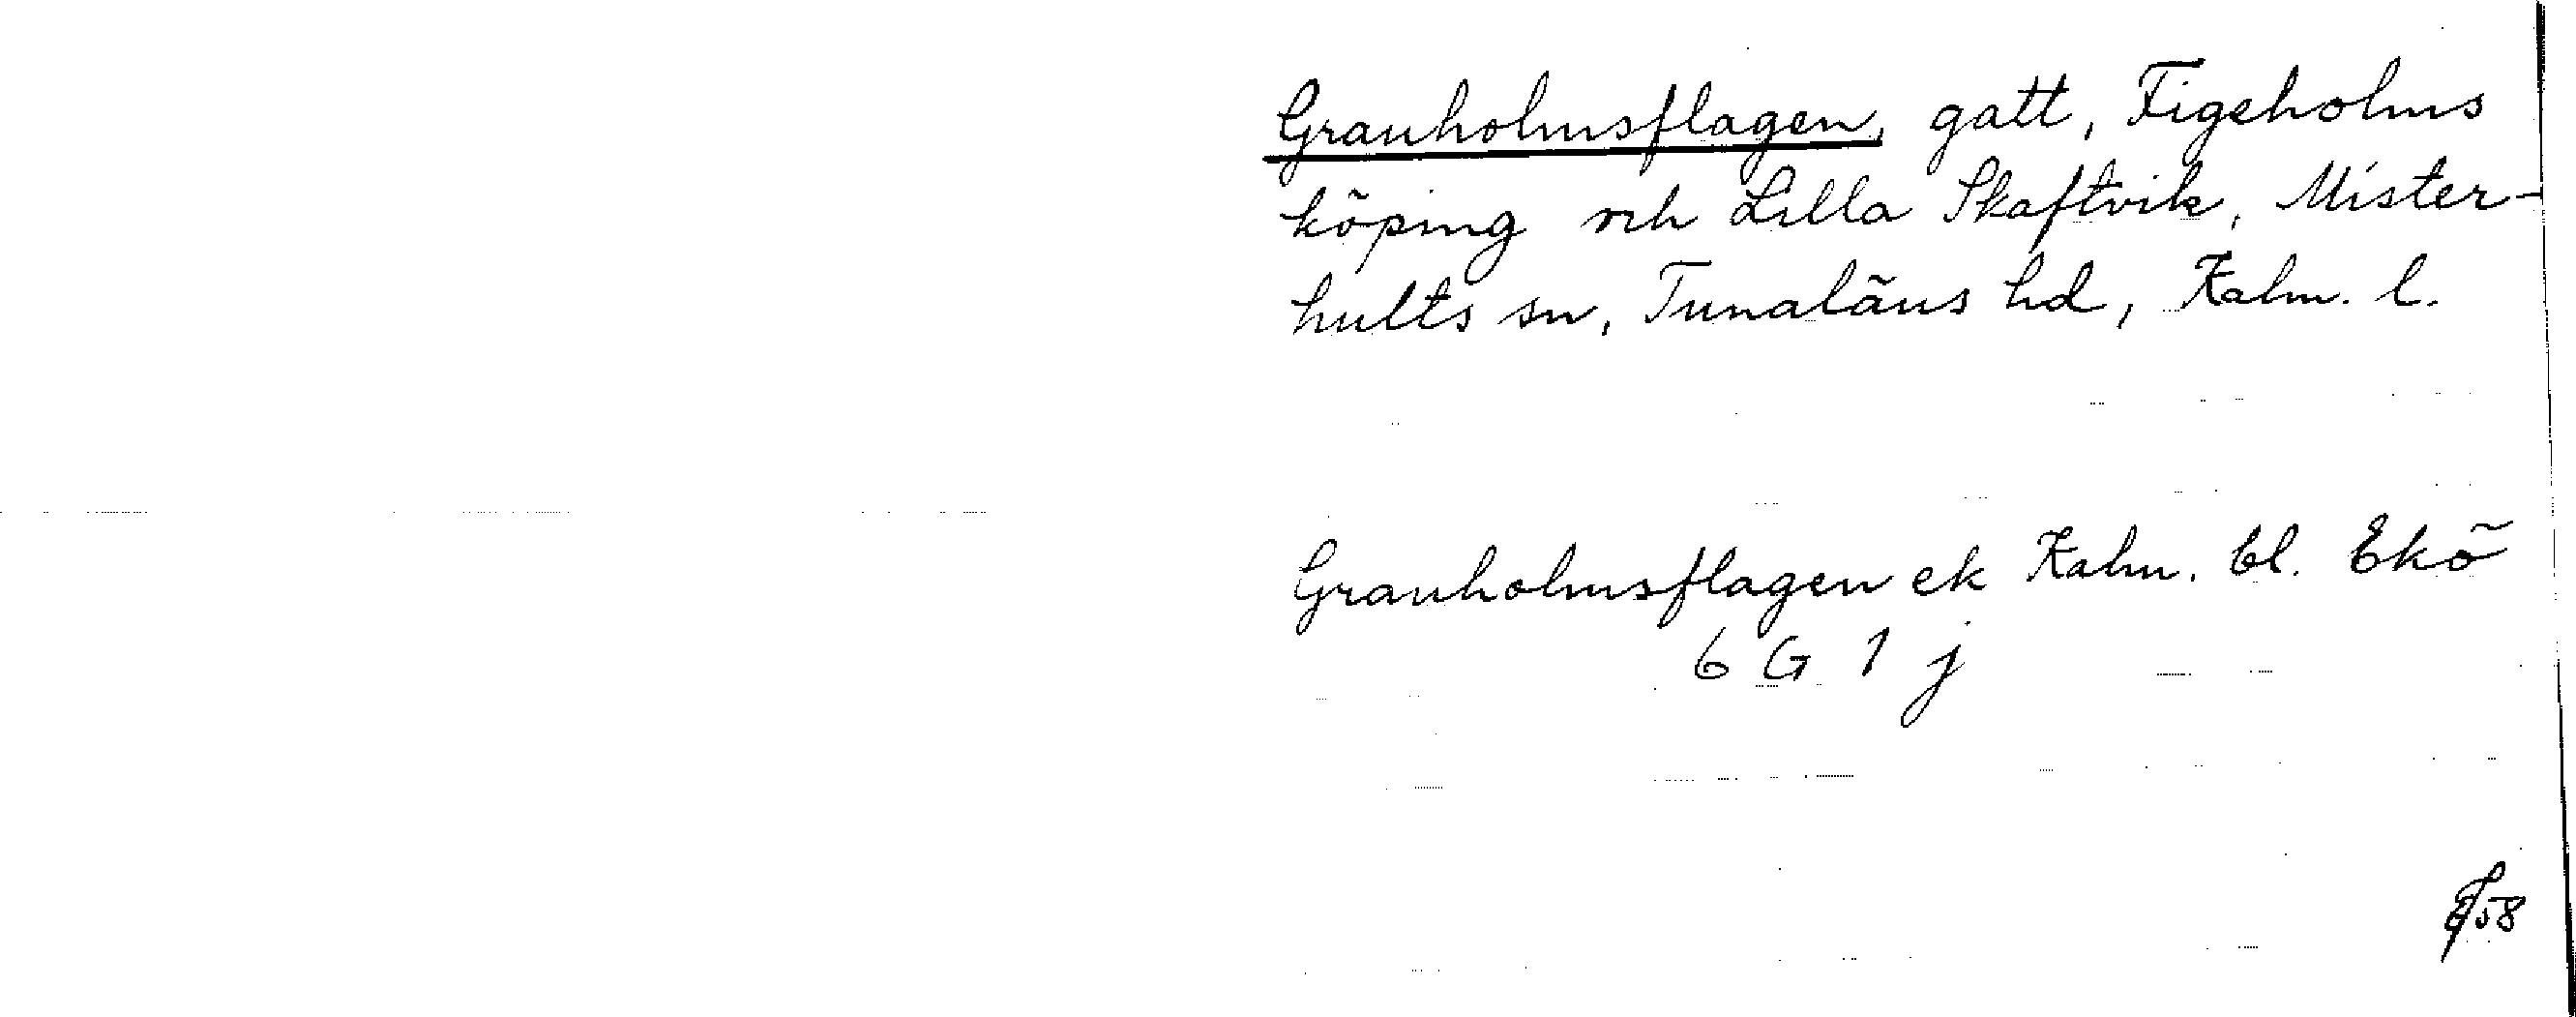 Granholmsflagen, gatt, Figeholms
köping och Lilla Skaftvik, Mister-
hults sn, Tunaläns hd, Kalm. l.
Granholmsflagen ek Kalm. bl. Ekö
6 G 1 j
58